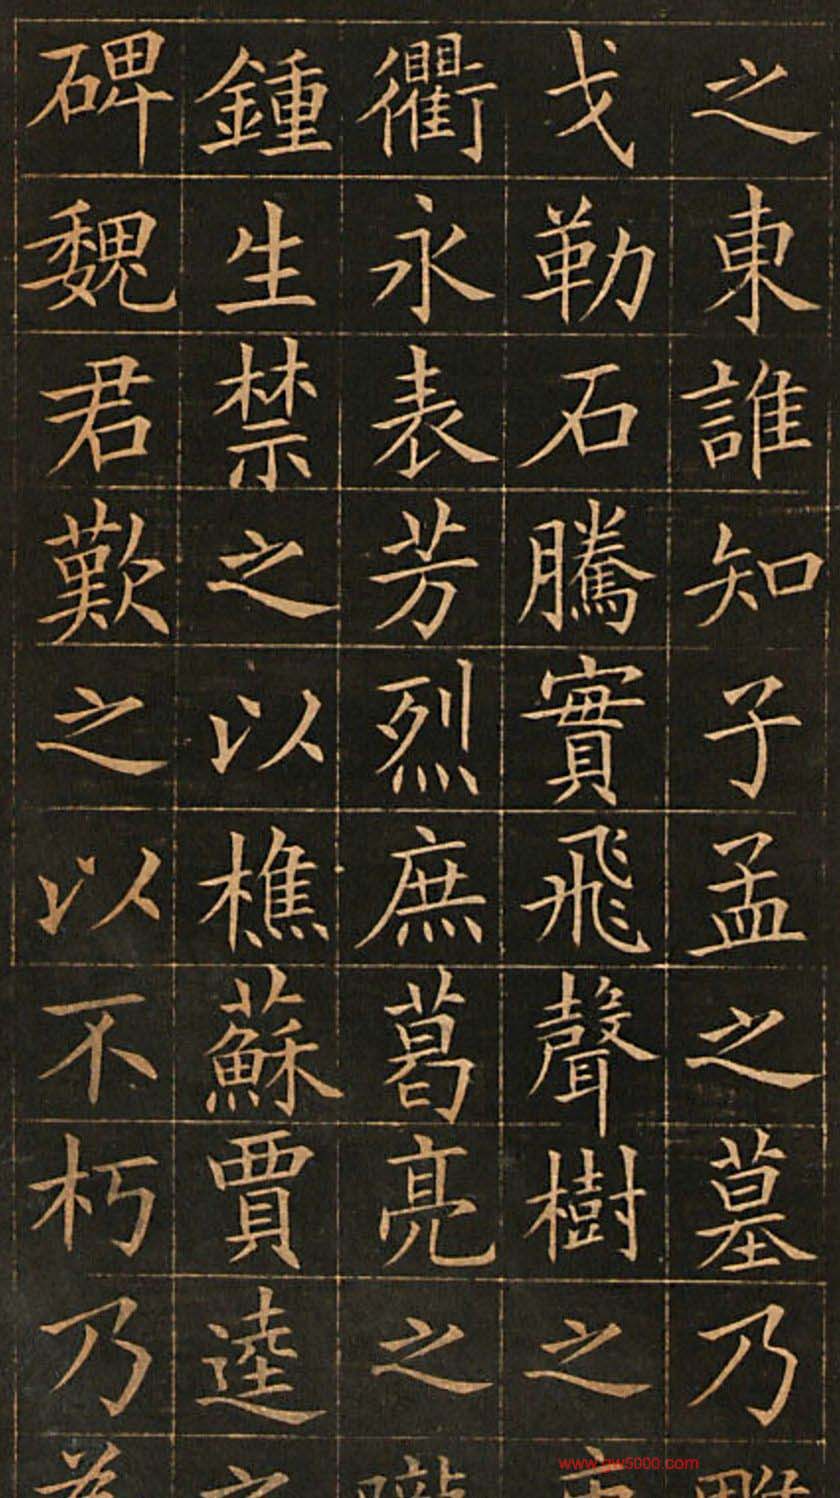 之東誰知子孟之墓乃
戈勒石騰實飛聲樹之
衢永表芳烈庶葛亮之
鍾生禁之以樵蘇賈逵之
碑魏君歎之以不朽乃
www.gw5000.com